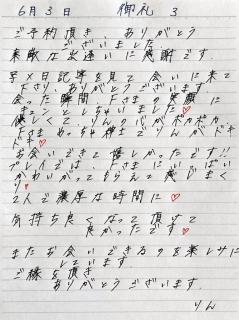 6月3日 御礼 3
ご予約頂き、ありがとう
ございました
素敵な出逢いに感謝です。
写メ日記等を見て会いに来て
下さり、ありがとうございます
会った瞬間、Fさまの笑顔に
キュンとしちゃいました♡
優しくて、りんの心がポカポカ
Fさま、めっちゃ紳士でりんがドキドキ
お会いできて嬉しかったです!!
プレイではFさまにいっぱい
かわいがってもらえて感じまくり♡
2人で濃厚な時間に♡
気持ち良くなって頂けて
良かったです♡
またお会いできるのを楽しみに
しています
ご縁を頂き
ありがとうございます。
りん